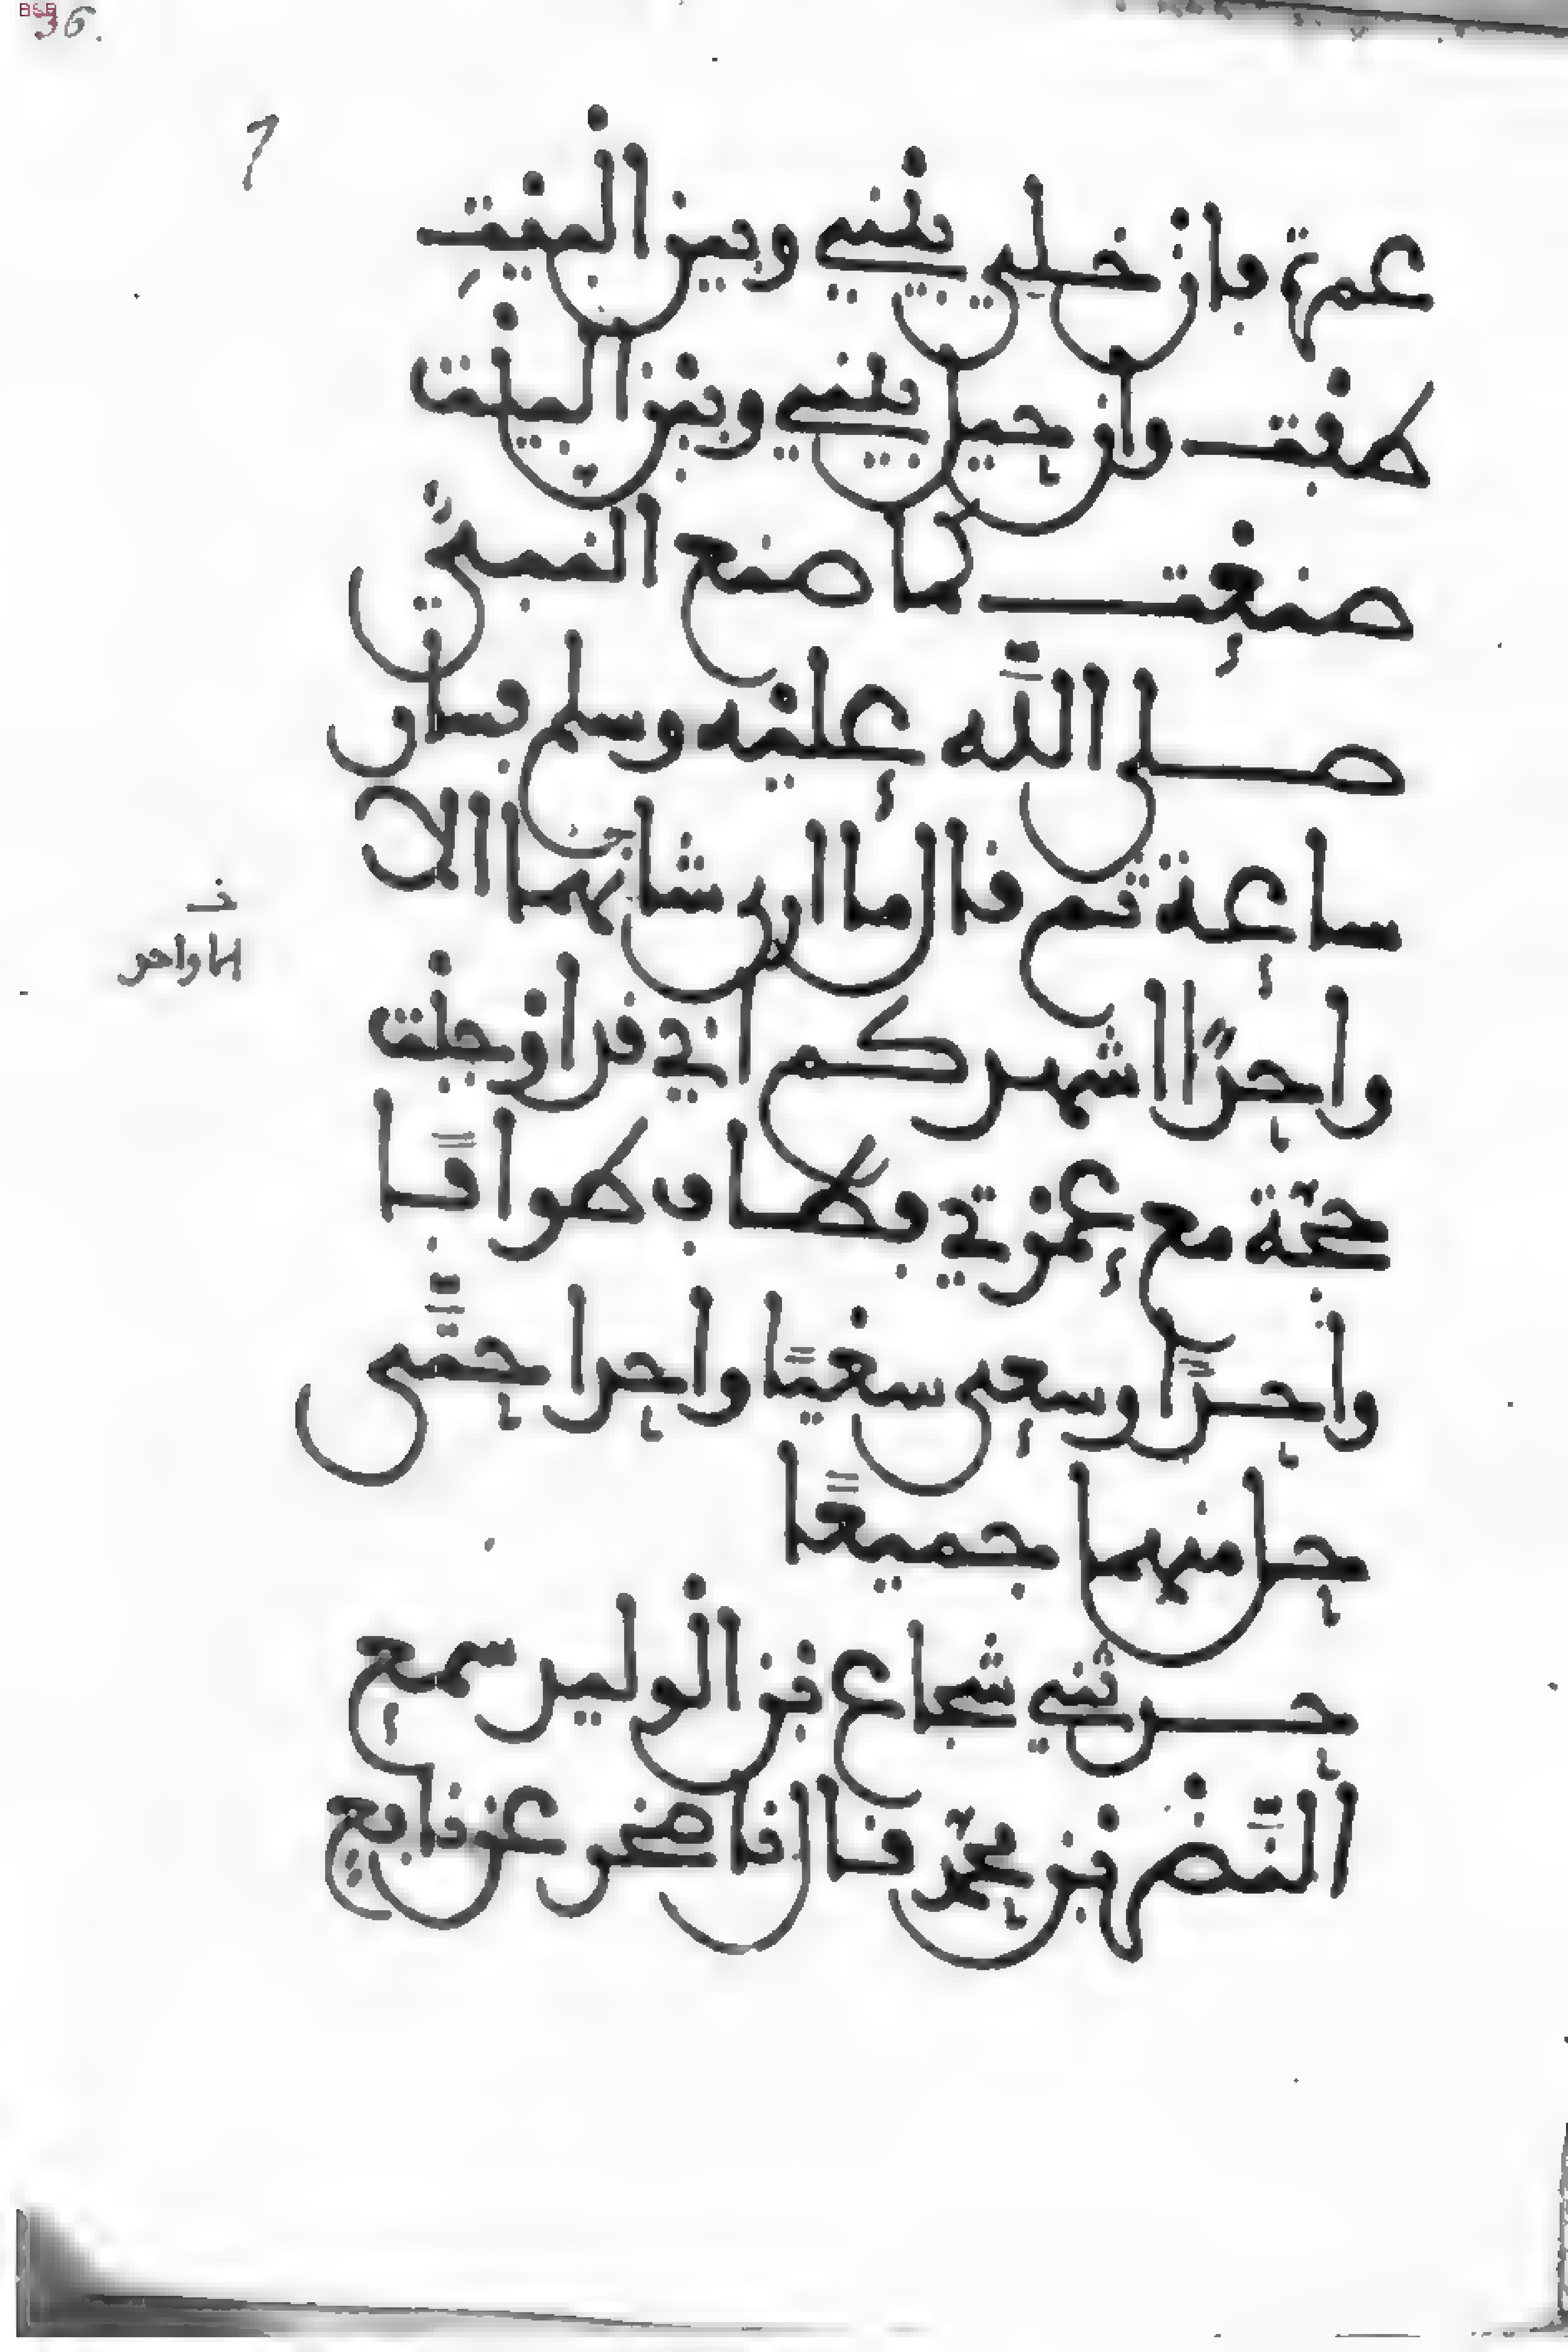 36.
1
عمرة فإن خلي بيني وبين البيت
طفت وإن حيل بيني وبين البيت
صنعت كما صنع النبي
صلى الله عليه وسلم فسار
ساعة ثم قال ما أرى شأنهما إلا
واحدا أشهدكم أني قد أوجبت
حجة مع عمرتي فطاف طوافا
واحدا وسعى سعيا واحدا حتى
حل منهما جميعا
حدثني شجاع بن الوليد سمع
النضر بن محمد قال نا صخر عن نافع